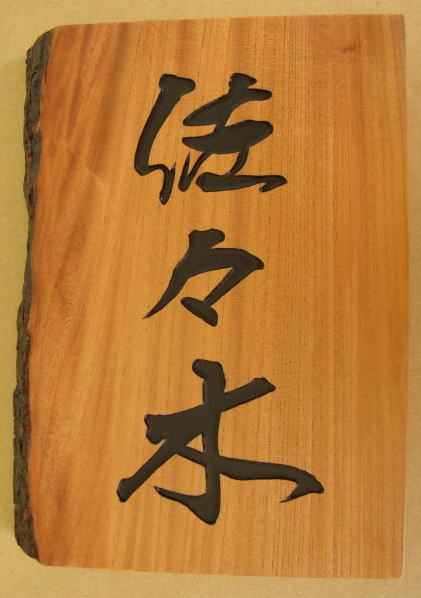 佐々木